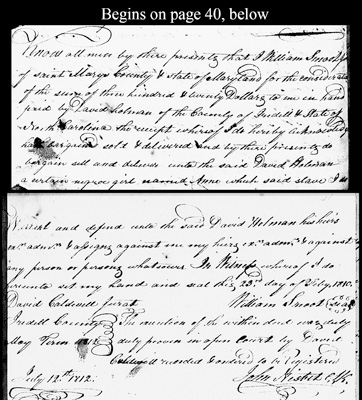 Begins on page 40, below
Know all men by these presents that I William Smoot
of saint Marys County & state of Maryland for the consideration
of the sum of three hundred & twenty Dollars to me in hand
paid by David Holman of the County of Iredell & State of
North Carolina the receipt whereof I do hereby acknowledge
have bargained sold & delivered and by these presents do
bargain sell and deliver unto the said David Holman
a certain negroe girl named Anne which said slave I do
Warrant and defend unto the said David Holman his heirs
exs. admrs. & assigns against me my heirs exs. admrs. & against
any person or persons whatsoever In Witness whereof I do
hereunto set my hand and seal this 23d. day of Feby. 1810.
David Caldwell jurat William Smoot Seal
Iredell County The execution of the within deed was duly
May Term 1812 duly proven in open Court by David
Caldwell recorded & ordered to be Registered
July 12th. 1812. John Nisbet C.Clk.